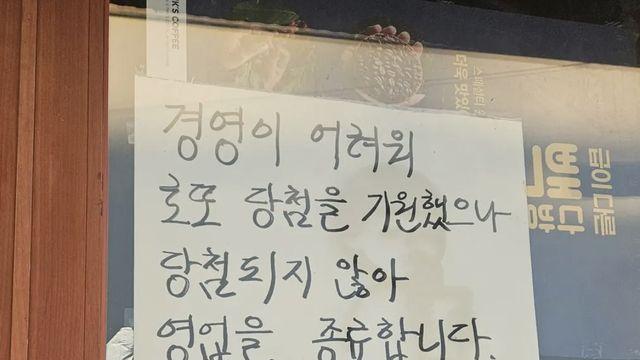 경영이 어려워
로또 당첨을 기원했으나
당첨되지 않아
영업을 종료합니다.
K'S COFFEE
스페셜티
더욱 맛있
급이 다른
빽다방